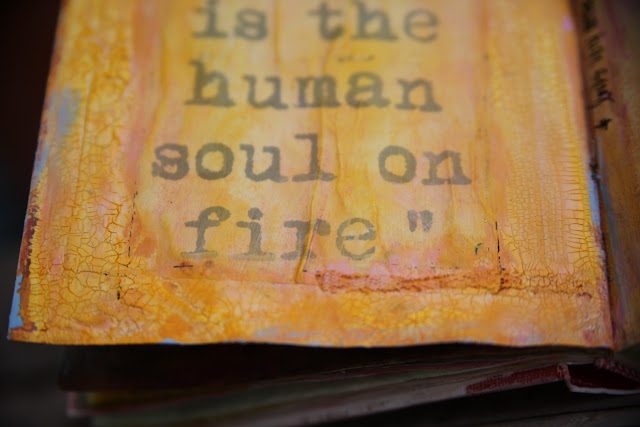 is the
human
soul on
fire"